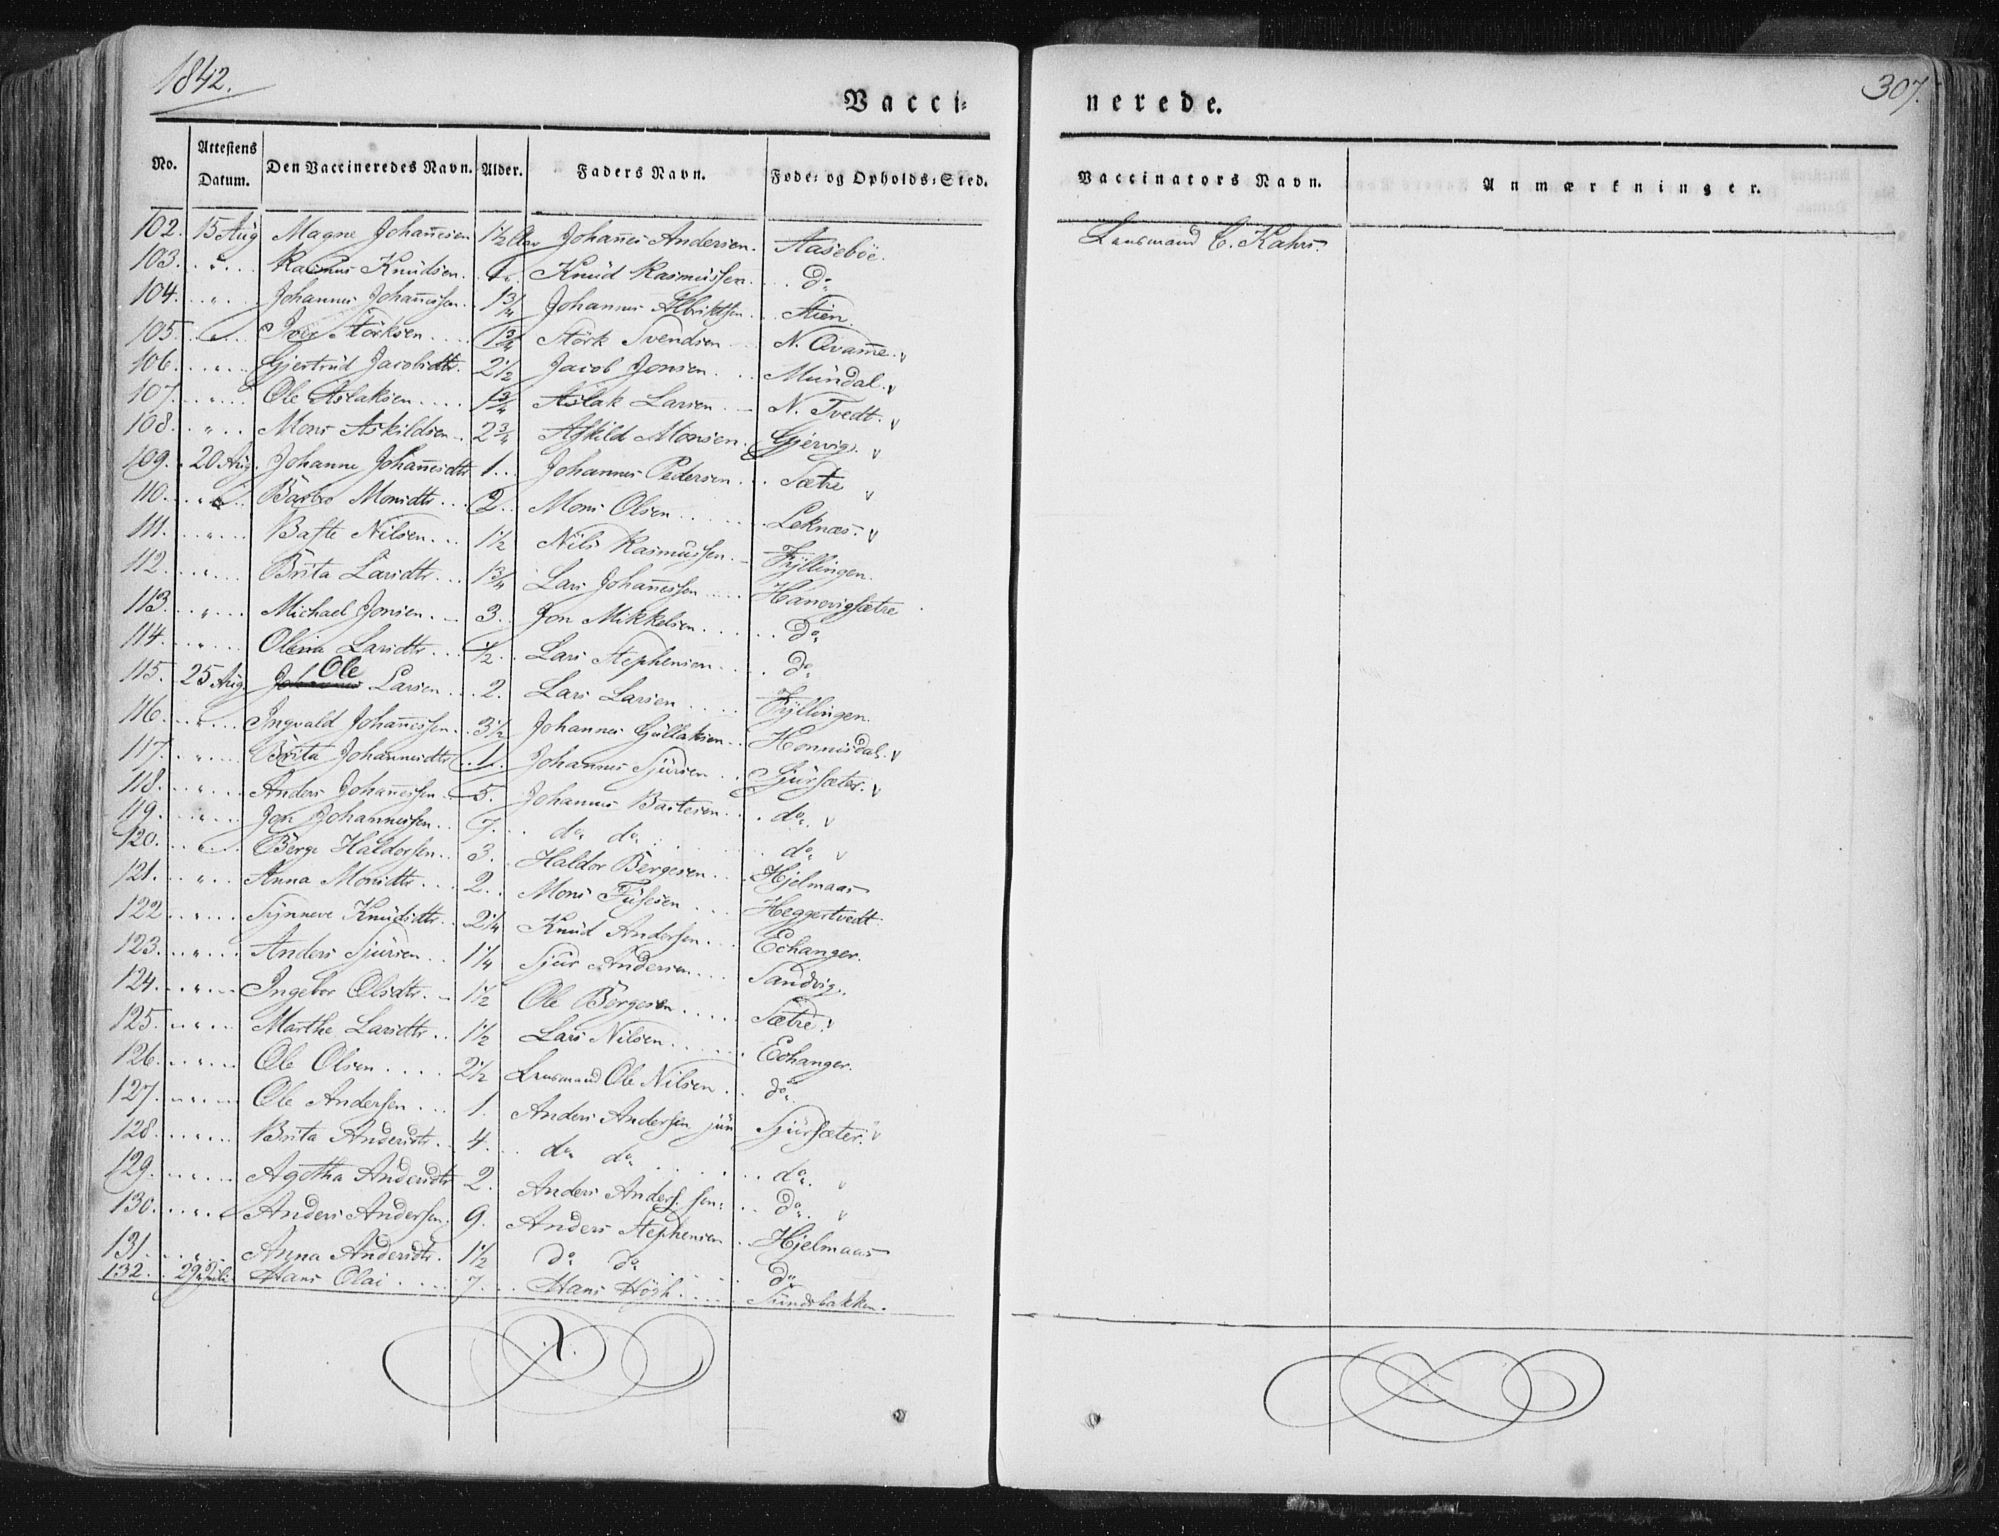 1842.
307.
Vacci= nerede.
No. Attestens Datum. Den Vaccineredes Navn. Alder. Faders Navn. Føde= og Opholds=Sted. Vaccinators Navn. Anmærkninger.
102. 15 Aug Magne Johañesen 1 1/2 Aar Johañes Andersen. Aasebøe. Lensmand C. Kahrs.
103. " Rasmus Knudsen. Knud Rasmussen. do
104. " Johannes Johañessen. 1 3/4 Johannes Albriktsen Stien.
105. " Iver Størksen 1 3/4 Størk Svendsen N. Qvam̄e. v
106. " Gjertrud Jacobsdtr. 2 1/2 Jacob Jonsen Mundal. v
107. " Ole Aslaksen 1 3/4 Aslak Larsen N. Tvedt. v
108. " Mons Askildsen 2 3/4 Askild Monsen. Gjervig. v
109. 20 Aug. Johanne Johañesdtr 1. Johannes Pedersen Sætre v
110. " Barbro Monsdtr. 2. Mons Olsen Leknæs. v
111. " Baste Nilsen 1 1/2 Nils Rasmussen Fyllingen.
112. " Brita Larsdtr. 1 3/4 Lars Johañessen Hanevigsætre
113. " Michael Jonsen 3. Jon Mikkelsen do
114. " Olina Larsdtr. 1/2 Lars Stephensen do
115. 25 Aug. Ole Larsen 2. Lars Larsen Fyllingen.
116. " Ingvald Johañessen. 3 1/2 Johannes Gullaksen Honnisdal. v
117. " Brita Johannesdtr 1. Johannes Sjursen Sjursæter. v
118. " Anders Johañessen 5. Johannes Bastesen do. v
119. " Jon Johannessen. 7. do do do v
120. " Børge Haldorsen 3. Haldor Bergesen Hjelmaas
121. " Anna Monsdtr. 2. Mons Heggertvedt
122 " Synneve Knudsdtr. 2 1/4 Knud Andersen Echanger.
123. " Anders Sjursen 1 1/4 Sjur Andersen Sandvig.
124. " Ingebor Olsdtr. 1 1/2 Ole Børgesen Sætre. v
125. " Marthe Larsdtr. 1 1/2 Lars Nilsen Echanger.
126. " Ole Olsen 2 1/2 Lensmand Ole Nilsen do
127. " Ole Andersen 1. Anders Andersen jun Sjursæter. v
128. " Brita Andersdtr. 4. do do do. v
129. " Agatha Andersdtr 2. Anders Andersen do. v
130. " Anders Andersen. 9. Anders Stephensen Hjelmaas
131. " Anna Andersdtr. 1 1/2 do do do
132. 29 Juli. Hans Olai 7. Hans Høgh Sundsbakken.